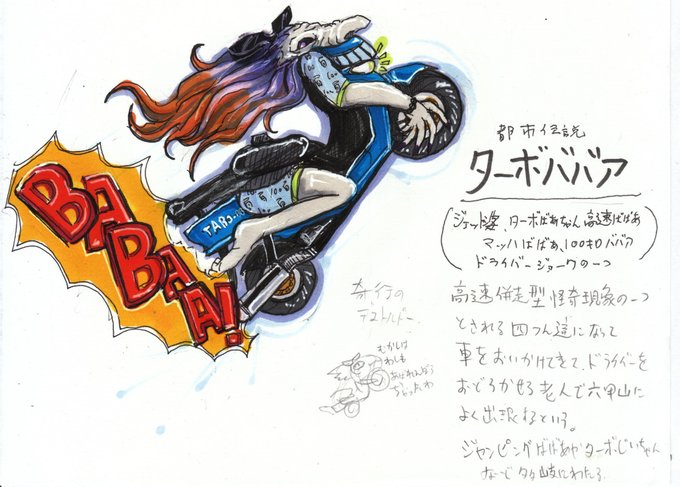 BABAAA!
TARB
都市伝説
ターボババア
ターボばあちゃん、高速ばばあ
マッハばばあ、100キロババア
ドライバージョークの一つ
高速併走型怪奇現象の一つ
とされる四つん這になって
車をおいかけてきて、ドライバーを
おどろかせる老人で六甲山に
よく出現するという。
ジャンピングばばあやターボじいちゃん
など多岐にわたる
奇行の
むかしは
わしも
あばれんぼう
じゃったわ